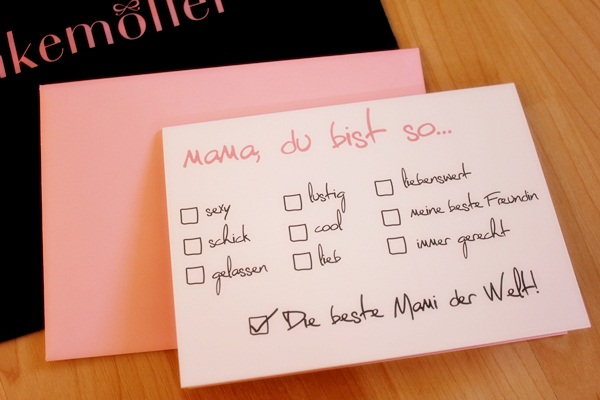 ikemöller
mama, du bist so...
sexy
schick
gelassen
lustig
cool
lieb
liebenswert
meine beste Freundin
immer gerecht
Die beste Mami der Welt!